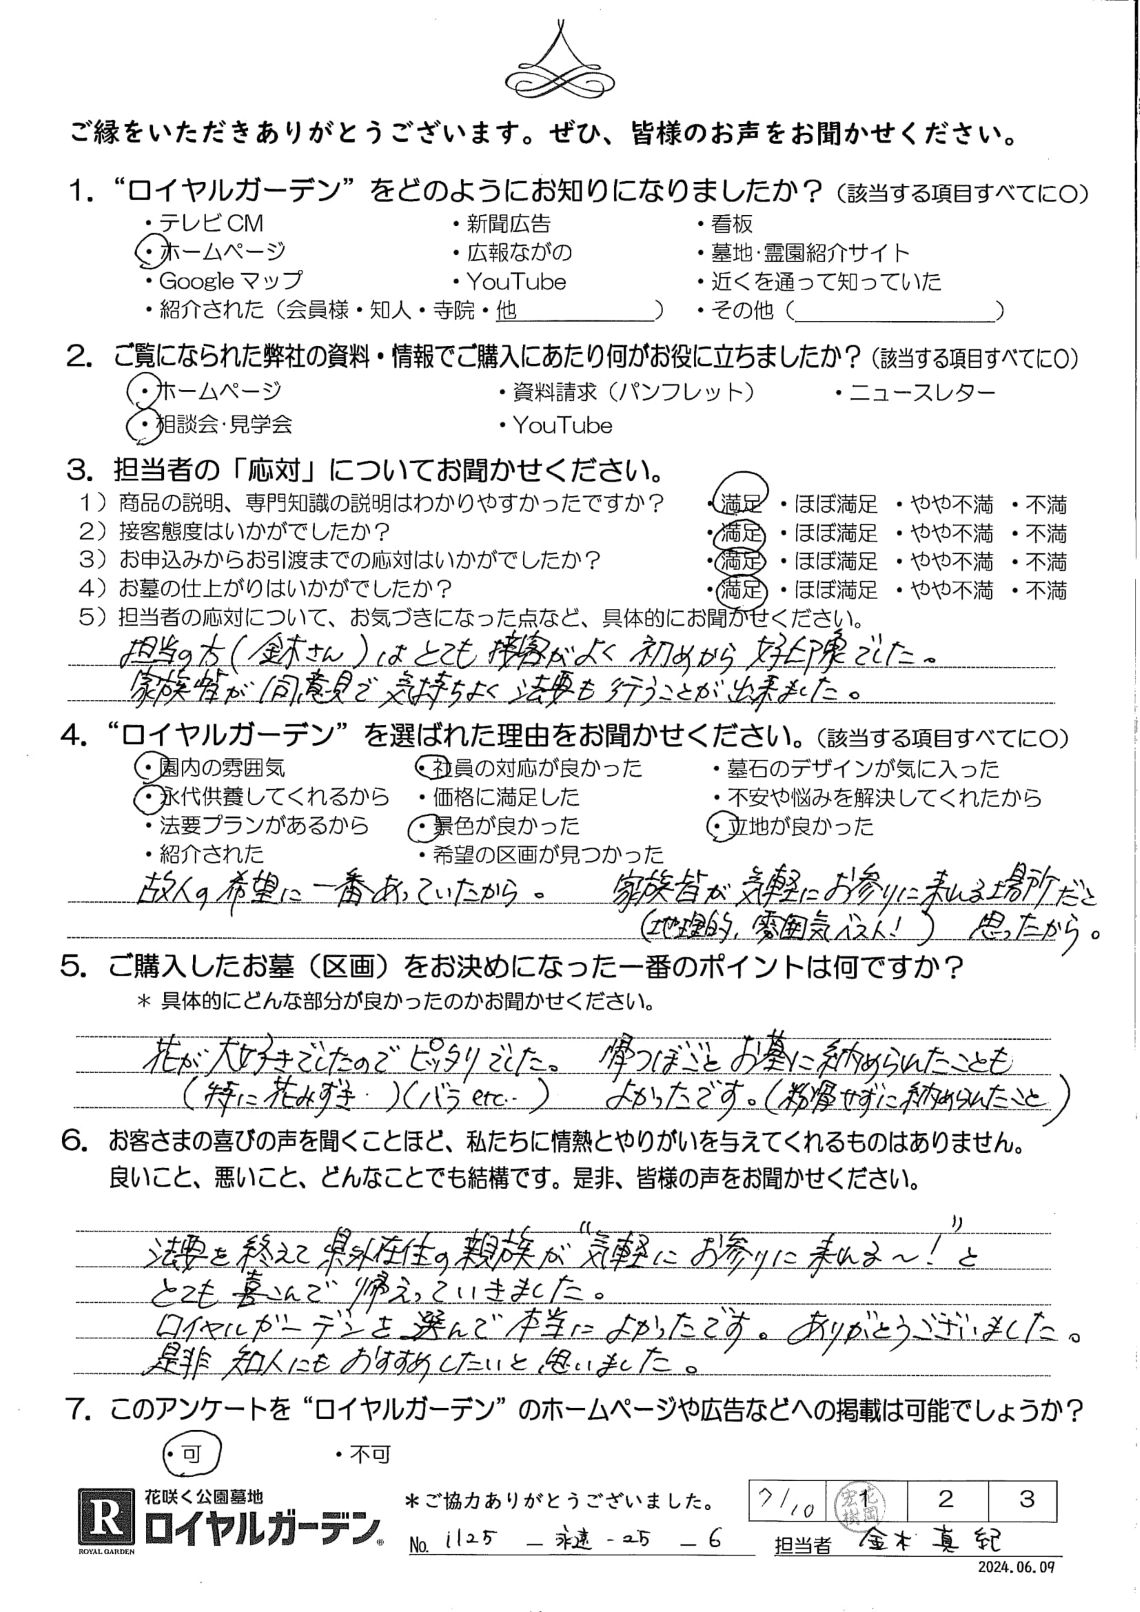 ご縁をいただきありがとうございます。ぜひ、皆様のお声をお聞かせください。
1. “ロイヤルガーデン” をどのようにお知りになりましたか？（該当する項目すべてに〇）
・テレビCM ・新聞広告 ・看板
・ホームページ ・広報ながの ・墓地・霊園紹介サイト
・Google マップ ・YouTube ・近くを通って知っていた
・紹介された（会員様・知人・寺院・他 ） ・その他（ ）
2. ご覧になられた弊社の資料・情報でご購入にあたり何がお役に立ちましたか？（該当する項目すべてに〇）
・ホームページ ・資料請求（パンフレット） ・ニュースレター
・相談会・見学会 ・YouTube
3. 担当者の「応対」についてお聞かせください。
1）商品の説明、専門知識の説明はわかりやすかったですか？ ・満足 ・ほぼ満足 ・やや不満 ・不満
2）接客態度はいかがでしたか？ ・満足 ・ほぼ満足 ・やや不満 ・不満
3）お申込みからお引渡までの応対はいかがでしたか？ ・満足 ・ほぼ満足 ・やや不満 ・不満
4）お墓の仕上がりはいかがでしたか？ ・満足 ・ほぼ満足 ・やや不満 ・不満
5）担当者の応対について、お気づきになった点など、具体的にお聞かせください。
担当の方（金木さん）はとても接客がよく 初めから 好印象でした。
家族皆が同意見で気持ちよく法要も行うことが出来ました。
4. “ロイヤルガーデン” を選ばれた理由をお聞かせください。（該当する項目すべてに〇）
・園内の雰囲気 ・社員の対応が良かった ・墓石のデザインが気に入った
・永代供養してくれるから ・価格に満足した ・不安や悩みを解決してくれたから
・法要プランがあるから ・景色が良かった ・立地が良かった
・紹介された ・希望の区画が見つかった
故人の希望に一番あっていたから。 家族皆が気軽にお参りに来れる場所だと
（地理的、雰囲気ベスト！） 思ったから。
5. ご購入したお墓（区画）をお決めになった一番のポイントは何ですか？
＊ 具体的にどんな部分が良かったのかお聞かせください。
花が大好きでしたのでピッタリでした。 骨つぼごとお墓に納められたことも
（特に花みずき・）（バラetc‥） よかったです。（粉骨せずに納められたこと）
6. お客さまの喜びの声を聞くことほど、私たちに情熱とやりがいを与えてくれるものはありません。
良いこと、悪いこと、どんなことでも結構です。是非、皆様の声をお聞かせください。
法要を終えて県外在住の親族が“気軽にお参りに来れる〜！”と
とても喜こんで帰えっていきました。
ロイヤルガーデンを選んで本当によかったです。ありがとうございました。
是非 知人にもおすすめしたいと思いました。
7. このアンケートを “ロイヤルガーデン” のホームページや広告などへの掲載は可能でしょうか？
・可 ・不可
R ROYAL GARDEN
花咲く公園墓地
ロイヤルガーデン®
＊ご協力ありがとうございました。
7/10 1 2 3
花岡宏樹
No. 1125 － 永遠 - 25 － 6
担当者 金木 真紀
2024.06.09